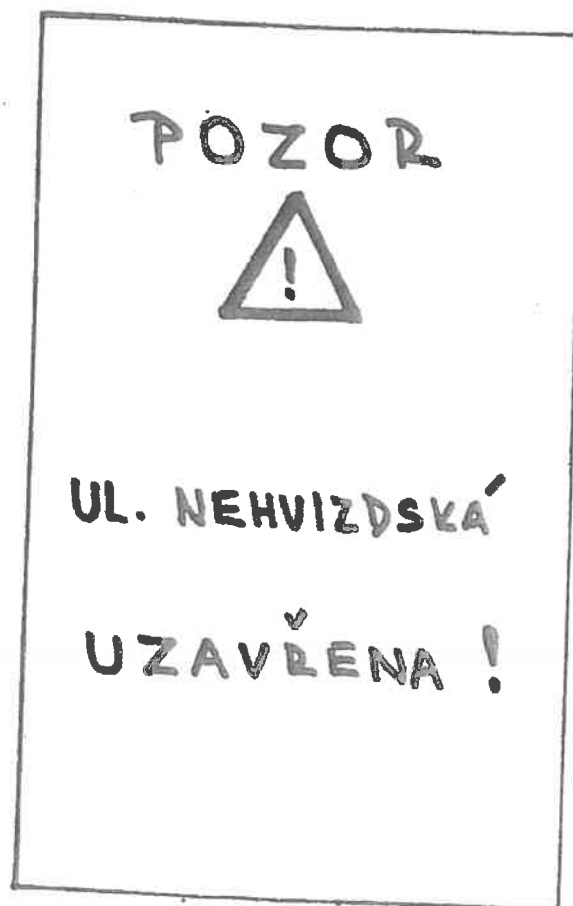 POZOR
!
UL. NEHVIZDSKÁ
UZAVŘENA !